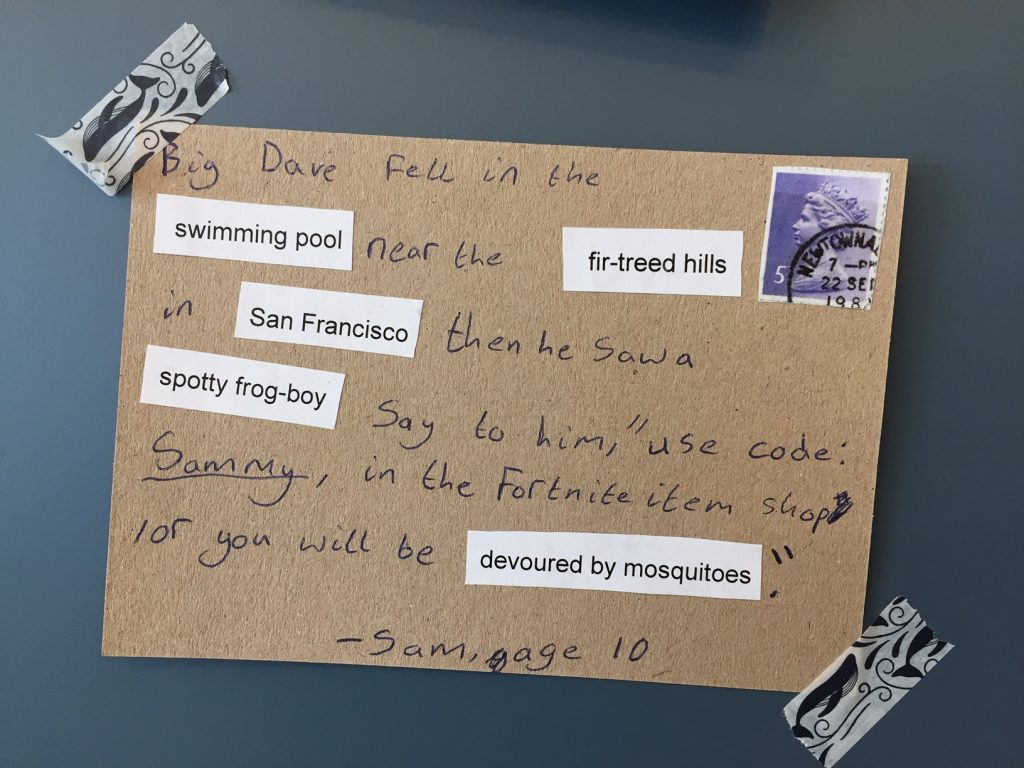 Big Dave Fell in the
swimming pool near the fir-treed hills
in San Francisco then he saw a
spotty frog-boy Say to him, "use code:
Sammy, in the Fortnite item shop
or you will be devoured by mosquitoes."
-Sam, age 10
5
7 -P
22 SE
198